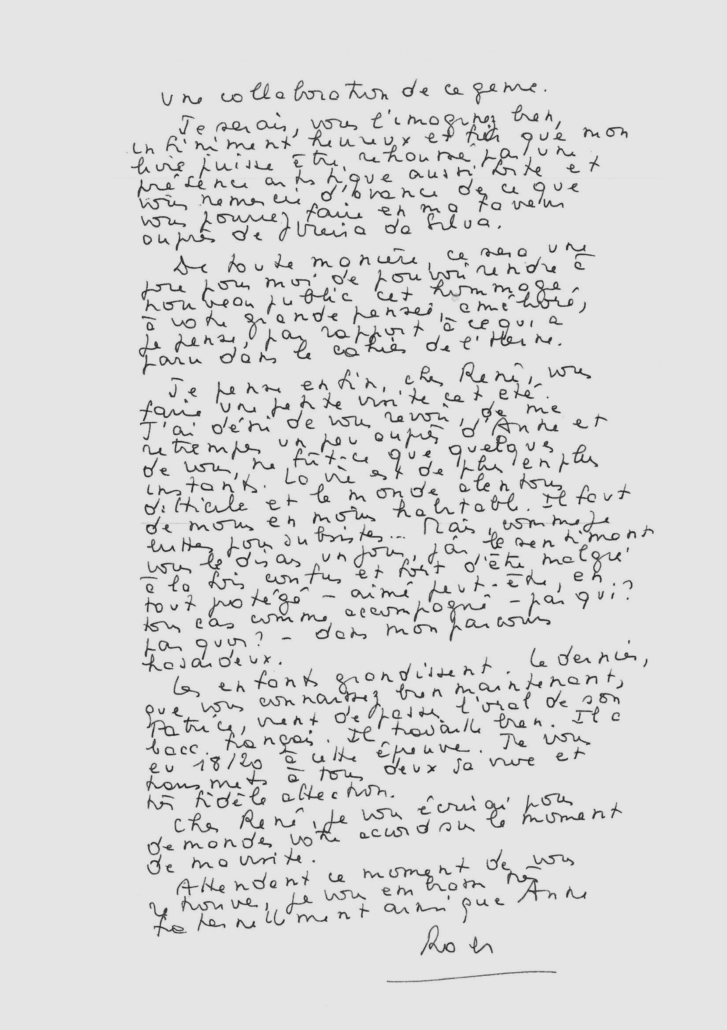 une collaboration de ce genre.
Je serais, vous l'imaginez bien,
infiniment heureux et fier que mon
livre puisse être rehaussé par une
présence artistique aussi forte et
vous remercie d'avance de ce que
vous pourrez faire en ma faveur
auprès de Vieira da Silva.
De toute manière, ce sera une
joie pour moi de pouvoir rendre à
nouveau public cet hommage
à votre grande pensée, amélioré,
je pense, par rapport à ce qui a
paru dans le cahier de l'Herne.
Je pense enfin, cher René, vous
faire une petite visite cet été.
J'ai désir de vous revoir, de me
retremper un peu auprès d'Anne et
de vous, ne fût-ce que quelques
instants. La vie est de plus en plus
difficile et le monde alentour
de moins en moins habitable. Il faut
lutter pour subsister... Mais, comme je
vous le disais un jour, j'ai le sentiment
à la fois confus et fort d'être malgré
tout protégé – aimé peut-être, en
tous cas comme accompagné – par qui?
par quoi? – dans mon parcours
hasardeux.
Les enfants grandissent. Le dernier,
que vous connaissez bien maintenant,
Patrice, vient de passer l'oral de son
bacc. français. Il travaille bien. Il a
eu 18/20 à cette épreuve. Je vous
transmets à tous deux sa vive et
très fidèle affection.
Cher René, je vous écrirai pour
demander votre accord sur le moment
de ma visite.
Attendant ce moment de vous
retrouver, je vous embrasse très
fraternellement ainsi que Anne
Roger